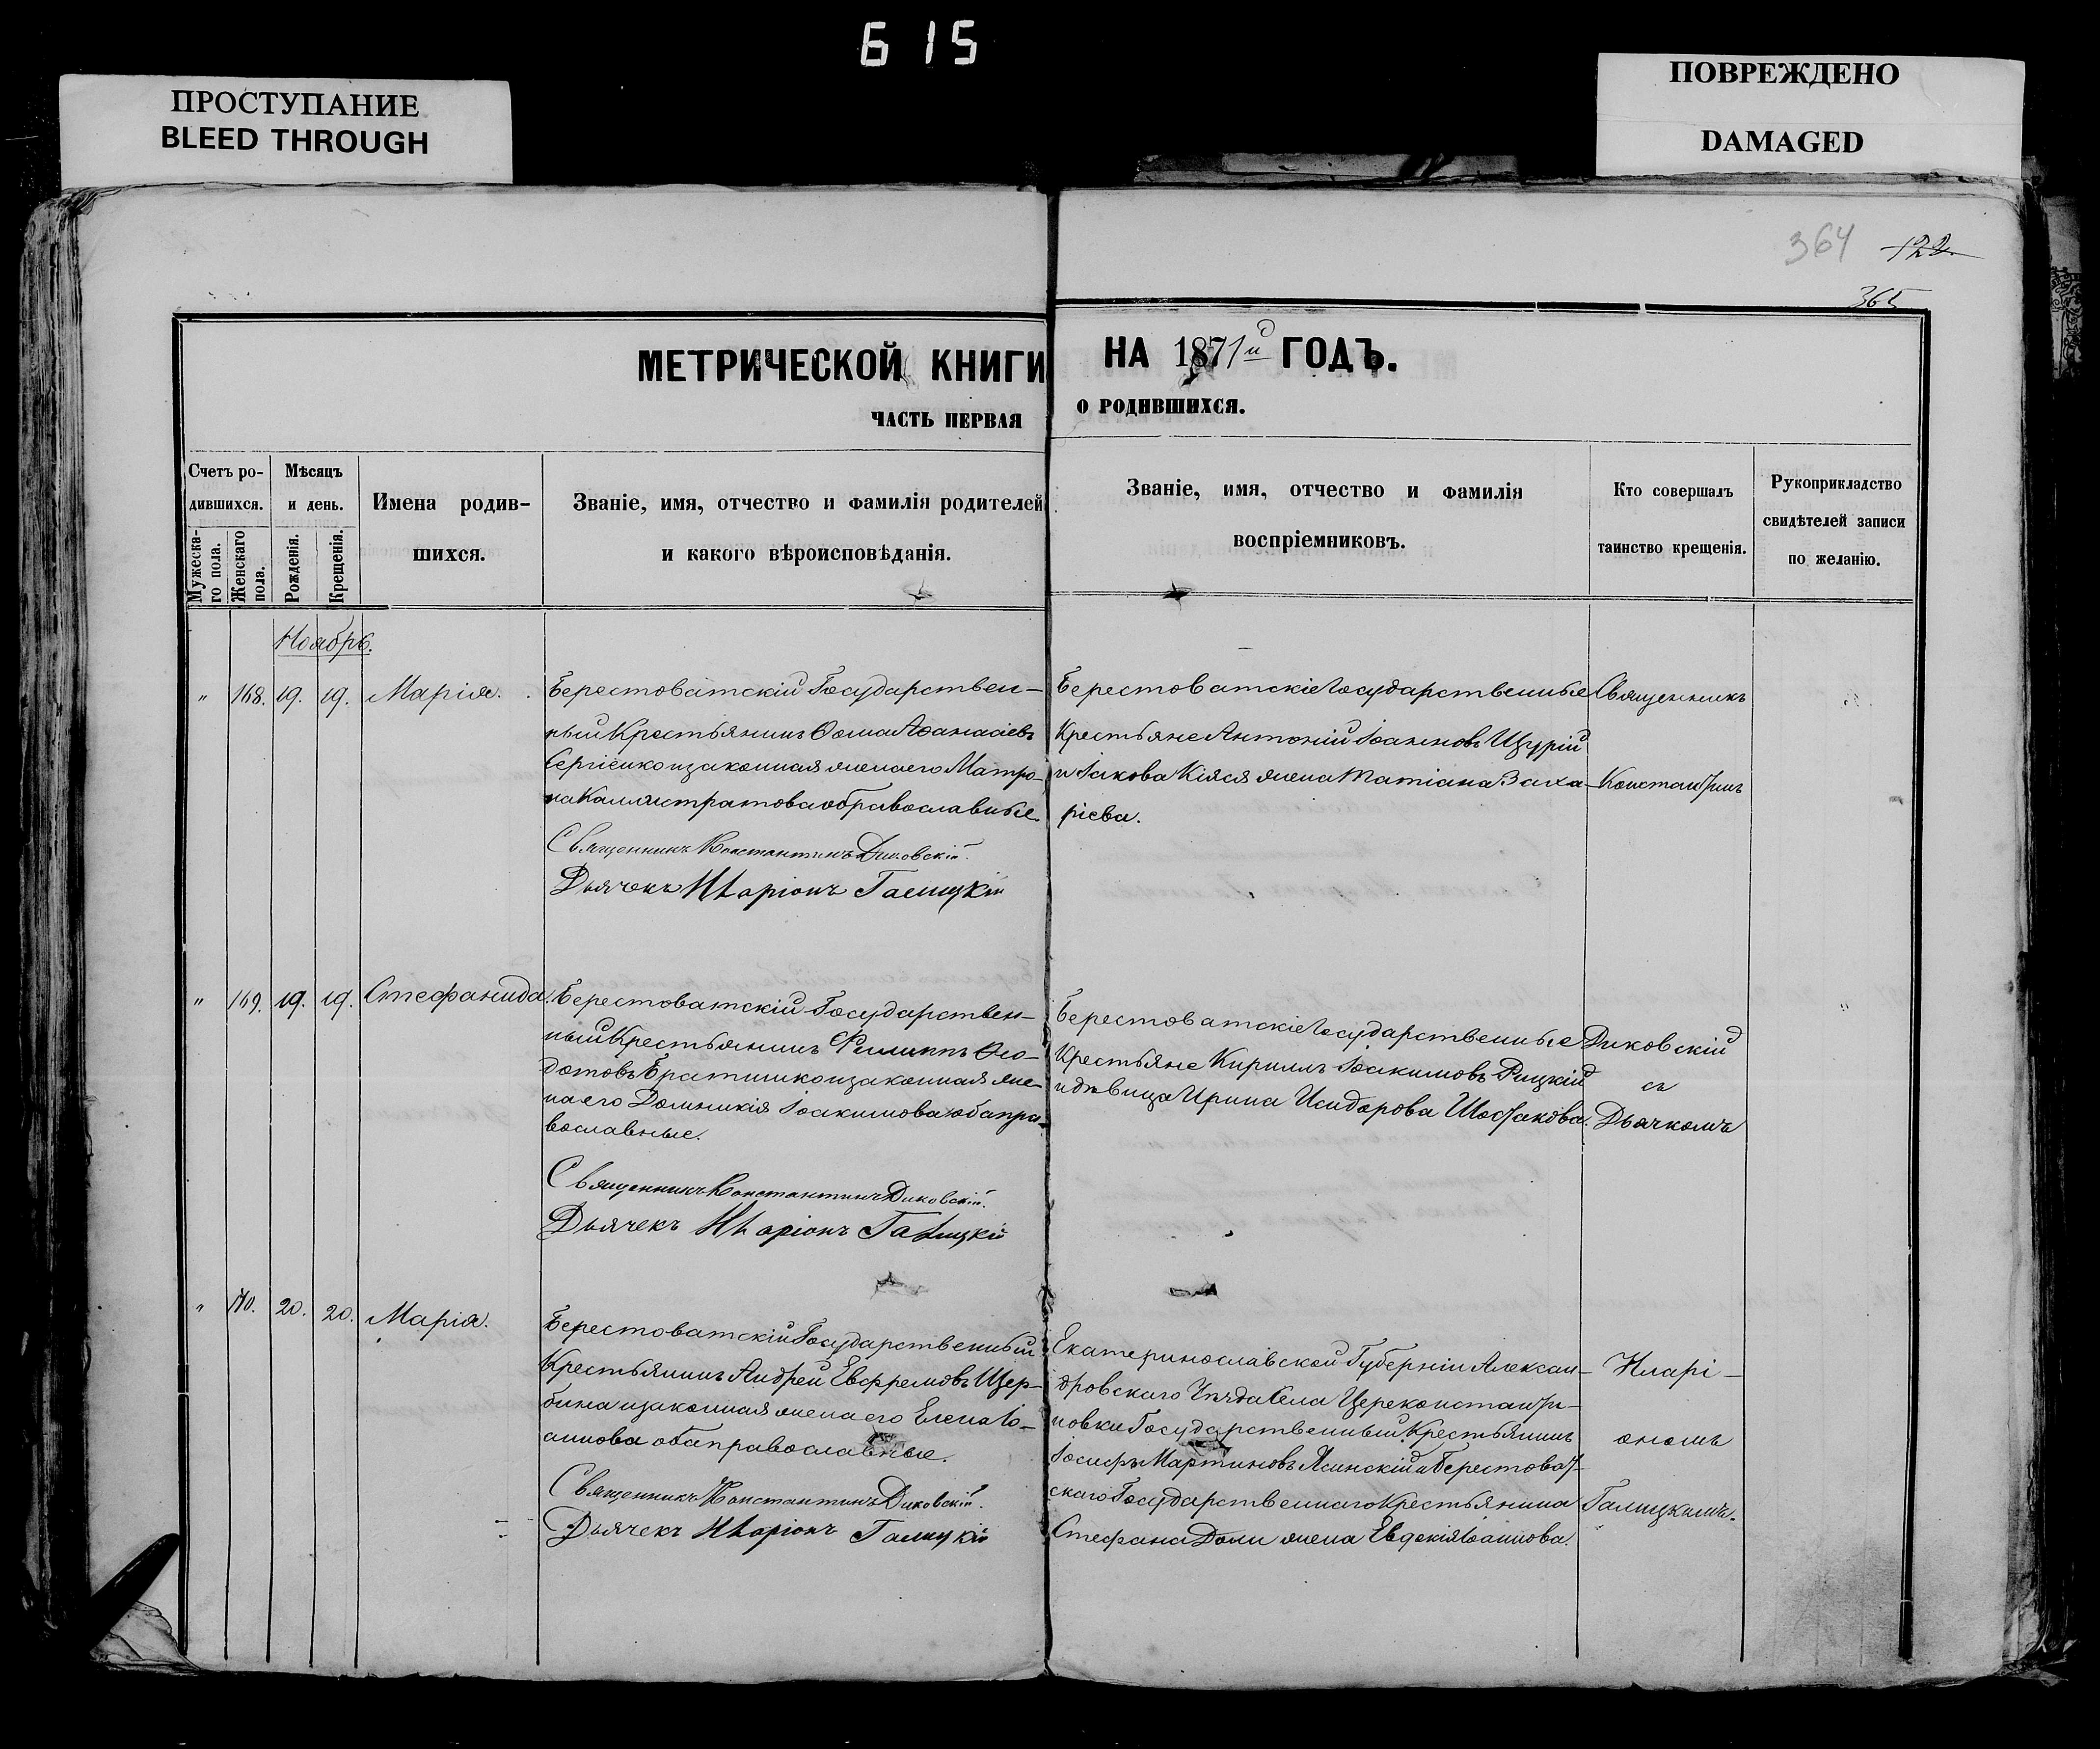 615
ПРОСТУПАНИЕ
BLEED THROUGH
ПОВРЕЖДЕНО
DAMAGED
364 122.
365
МЕТРИЧЕСКОЙ КНИГИ НА 1871й ГОДЪ.
ЧАСТЬ ПЕРВАЯ О РОДИВШИХСЯ.
Счетъ ро-
дившихся.
Мужеска-
го пола.
Женскаго
пола.
Мѣсяцъ
и день.
Рожденія.
Крещенія.
Имена родив-
шихся.
Званіе, имя, отчество и фамилія родителей
и какого вѣроисповѣданія.
Званіе, имя, отчество и фамилія
воспріемниковъ.
Кто совершалъ
таинство крещенія.
Рукоприкладство
свидѣтелей записи
по желанію.
Ноябрь.
" 168. 19. 19. Марія.
Берестоватскій Государствен-
ный Крестьянинъ Ѳома Аѳанасіевъ
Сергіенко и законная жена его Матро-
на Каллистратова оба православные.
Священникъ Константинъ Диковскій.
Дьячекъ Иларіонъ Галицкій
Берестоватскіе Государственные
Крестьяне Антоній Іоанновъ Щурій
и Іакова Кіяся жена Татіана Заха-
ріева.
Священникъ
Константинъ
" 169. 19. 19. Стефанида.
Берестоватскій Государствен-
ный Крестьянинъ Филиппъ Ѳео-
дотовъ Братишко и законная же-
на его Домникія Іоакимова оба пра-
вославные.
Священникъ Константинъ Диковскій.
Дьячекъ Иларіонъ Галицкій
Берестоватскіе Государственные
Крестьяне Кириллъ Іоакимовъ Рицкій
и дѣвица Ирина Исидорова Шостакова.
Диковскій
съ
Дьячкомъ
" 170. 20. 20. Марія.
Берестоватскій Государственный
Крестьянинъ Андрей Евфремовъ Щер-
бина и законная жена его Елена Іо-
аннова оба православные.
Священникъ Константинъ Диковскій.
Дьячекъ Иларіонъ Галицкій
Екатеринославской Губерніи Алексан-
дровскаго Уѣзда Села Цереконстанти-
новки Государственный Крестьянинъ
Іосифъ Мартиновъ Ясинскій и Берестоват-
скаго Государственнаго Крестьянина
Стефана Доли жена Евдокія Іоаннова.
Иларі-
ономъ
Галицкимъ.